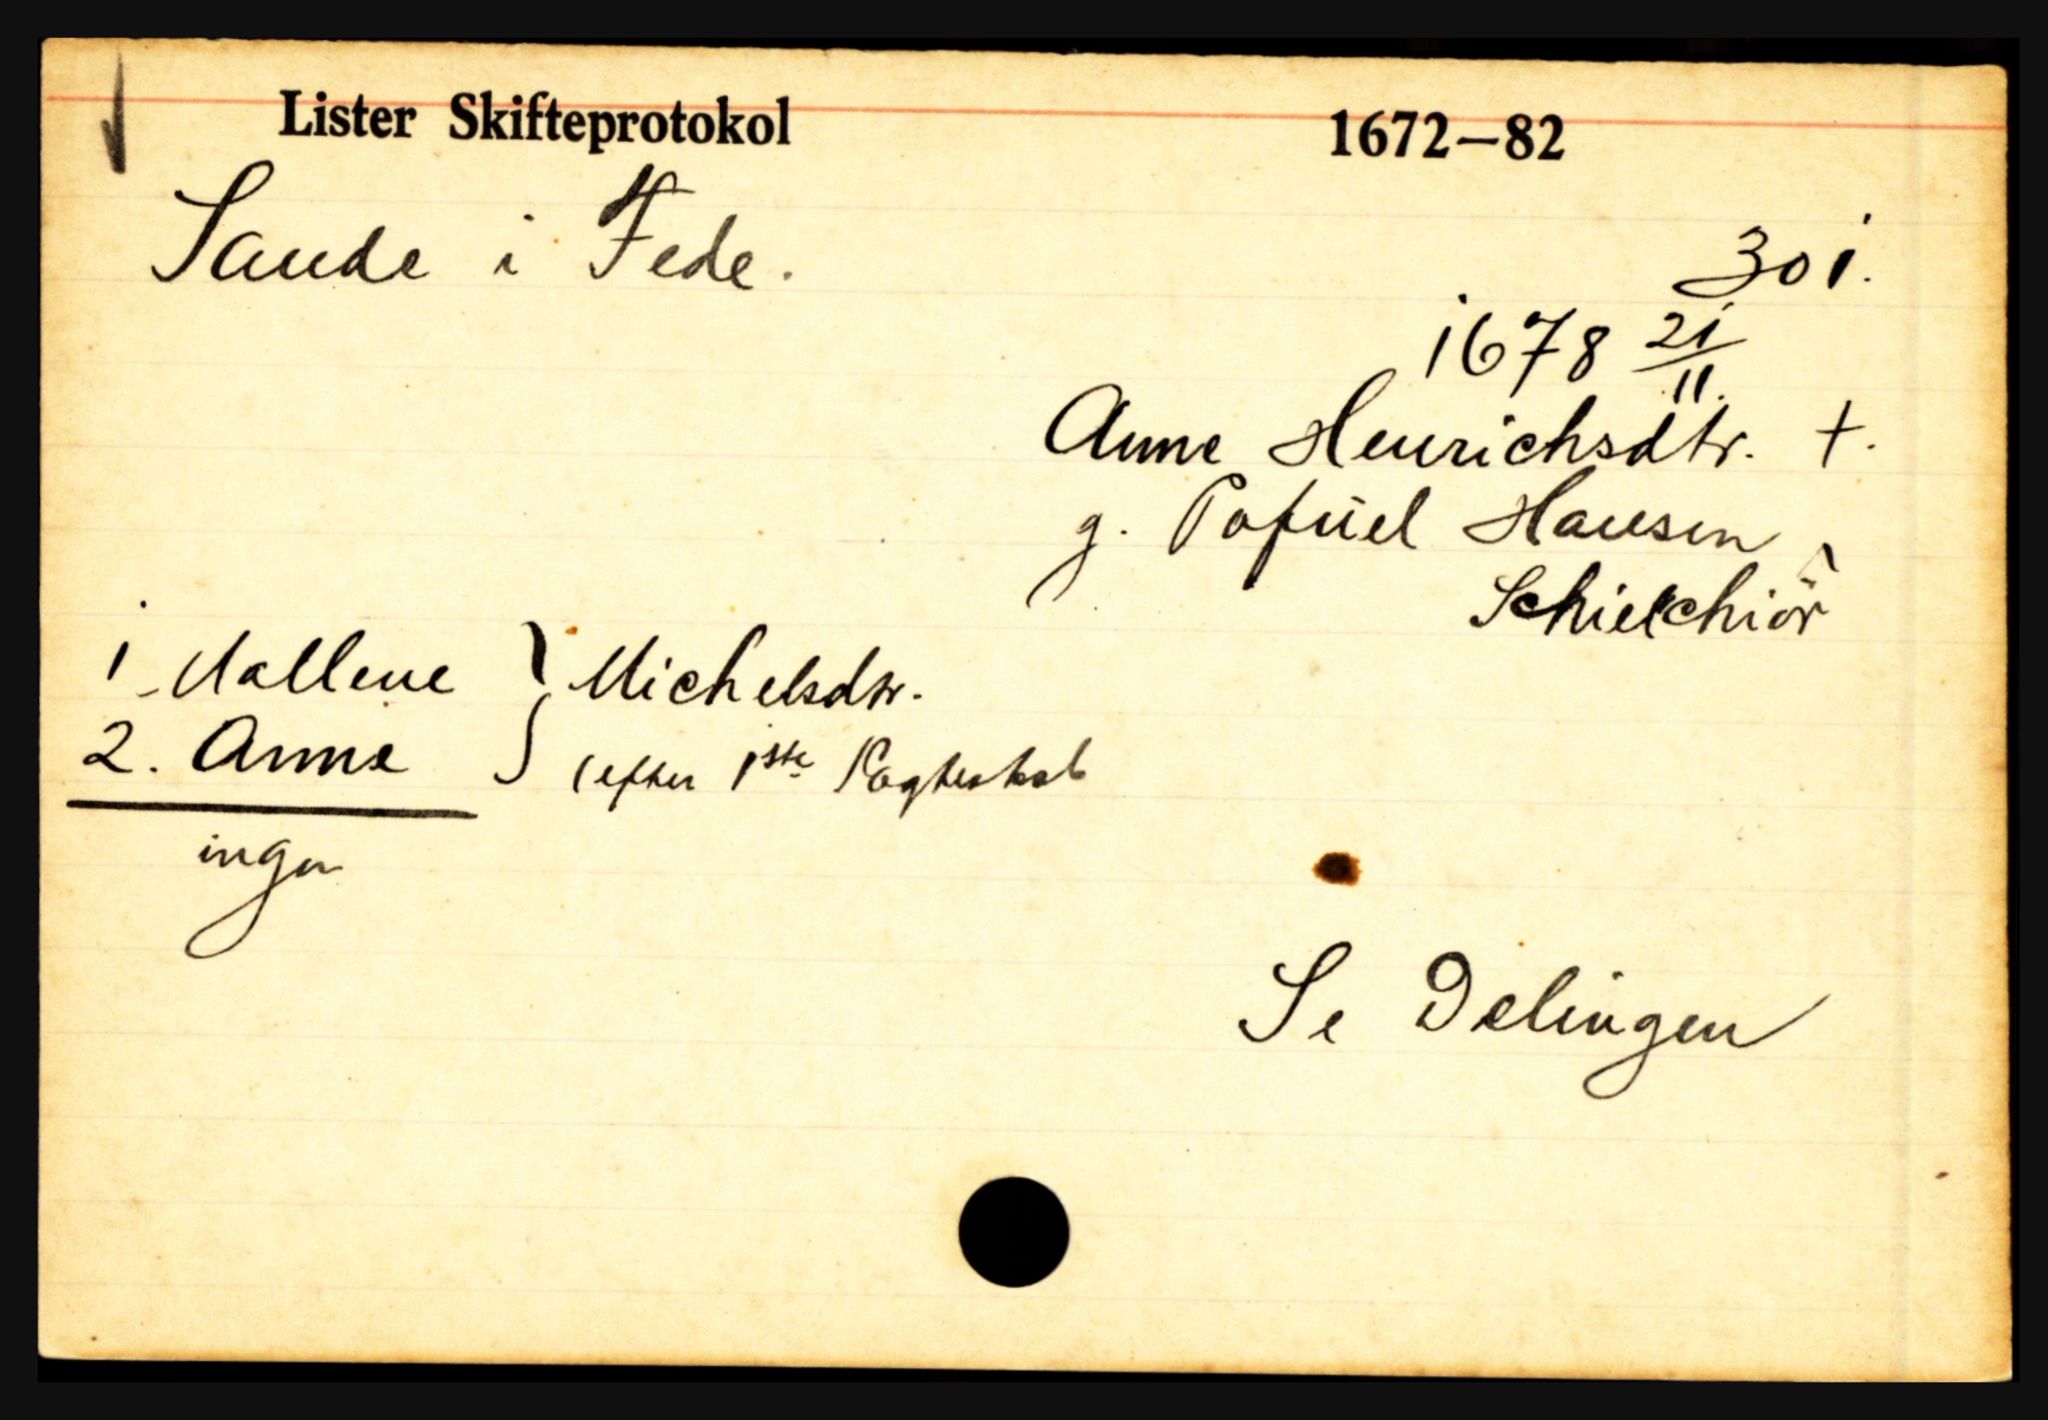 Lister Skifteprotokol 1672–82
Sande i Fede. 301.
1678 21/11.
Anne Henrichsdtr. +.
g. Pofuel Hansen
Schielchiör
1. Mallene } Michelsdtr.
2. Anne } (efter 1ste Egteskab
ingen
Se Delingen